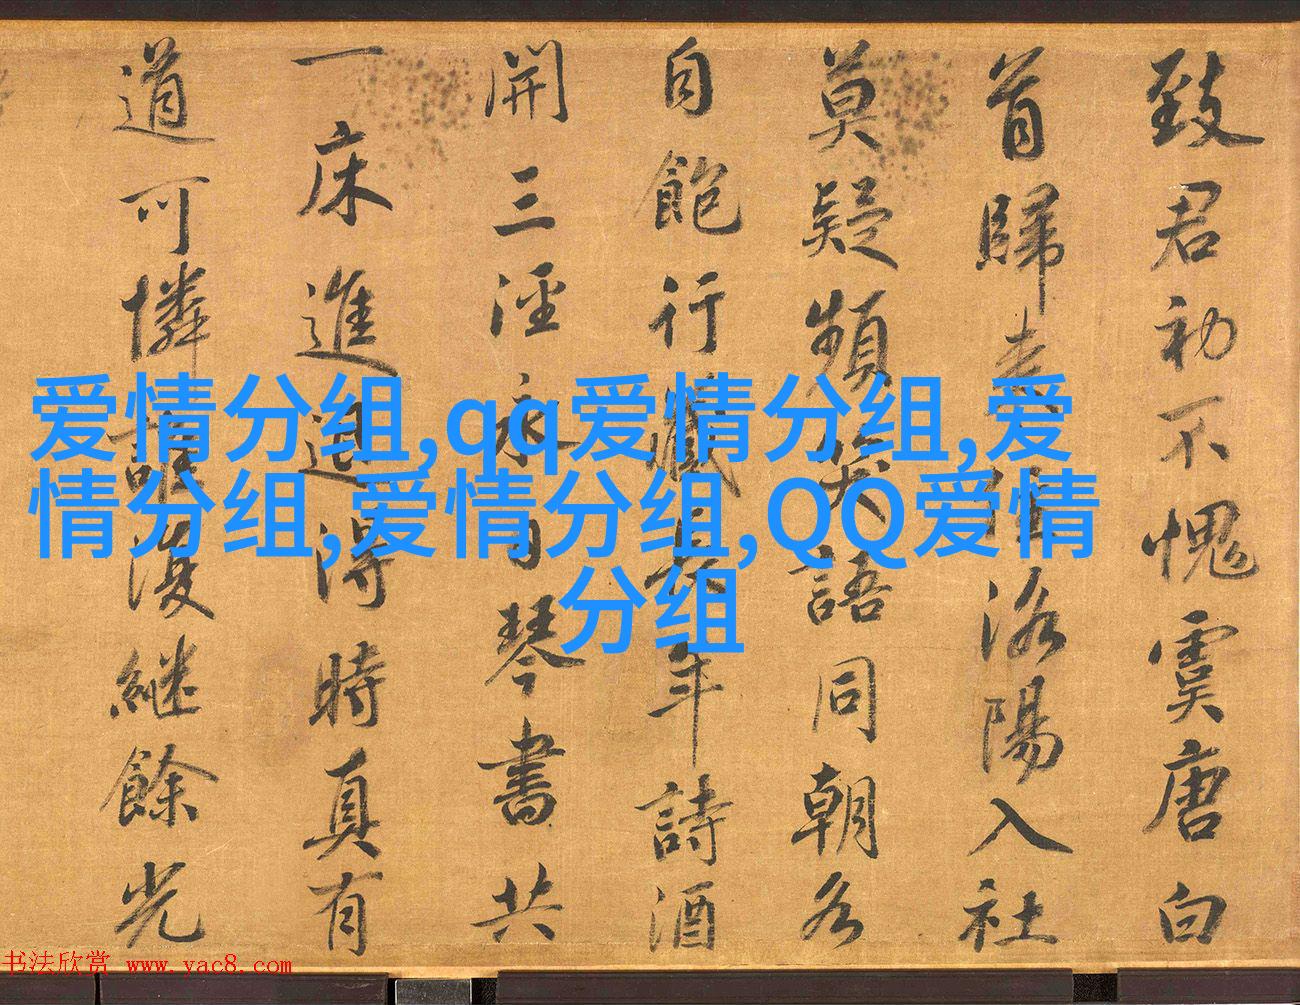 致君初不愧虞唐白
首歸住洛陽入社
莫疑頻笑語同朝各
自飽行藏長年詩酒
開三涇永日琴書共
一床進退得時真有
道可憐誰復繼餘光
爱情分组,qq爱情分组,爱
情分组,爱情分组,QQ爱情
分组
书法欣赏 www.yac8.com